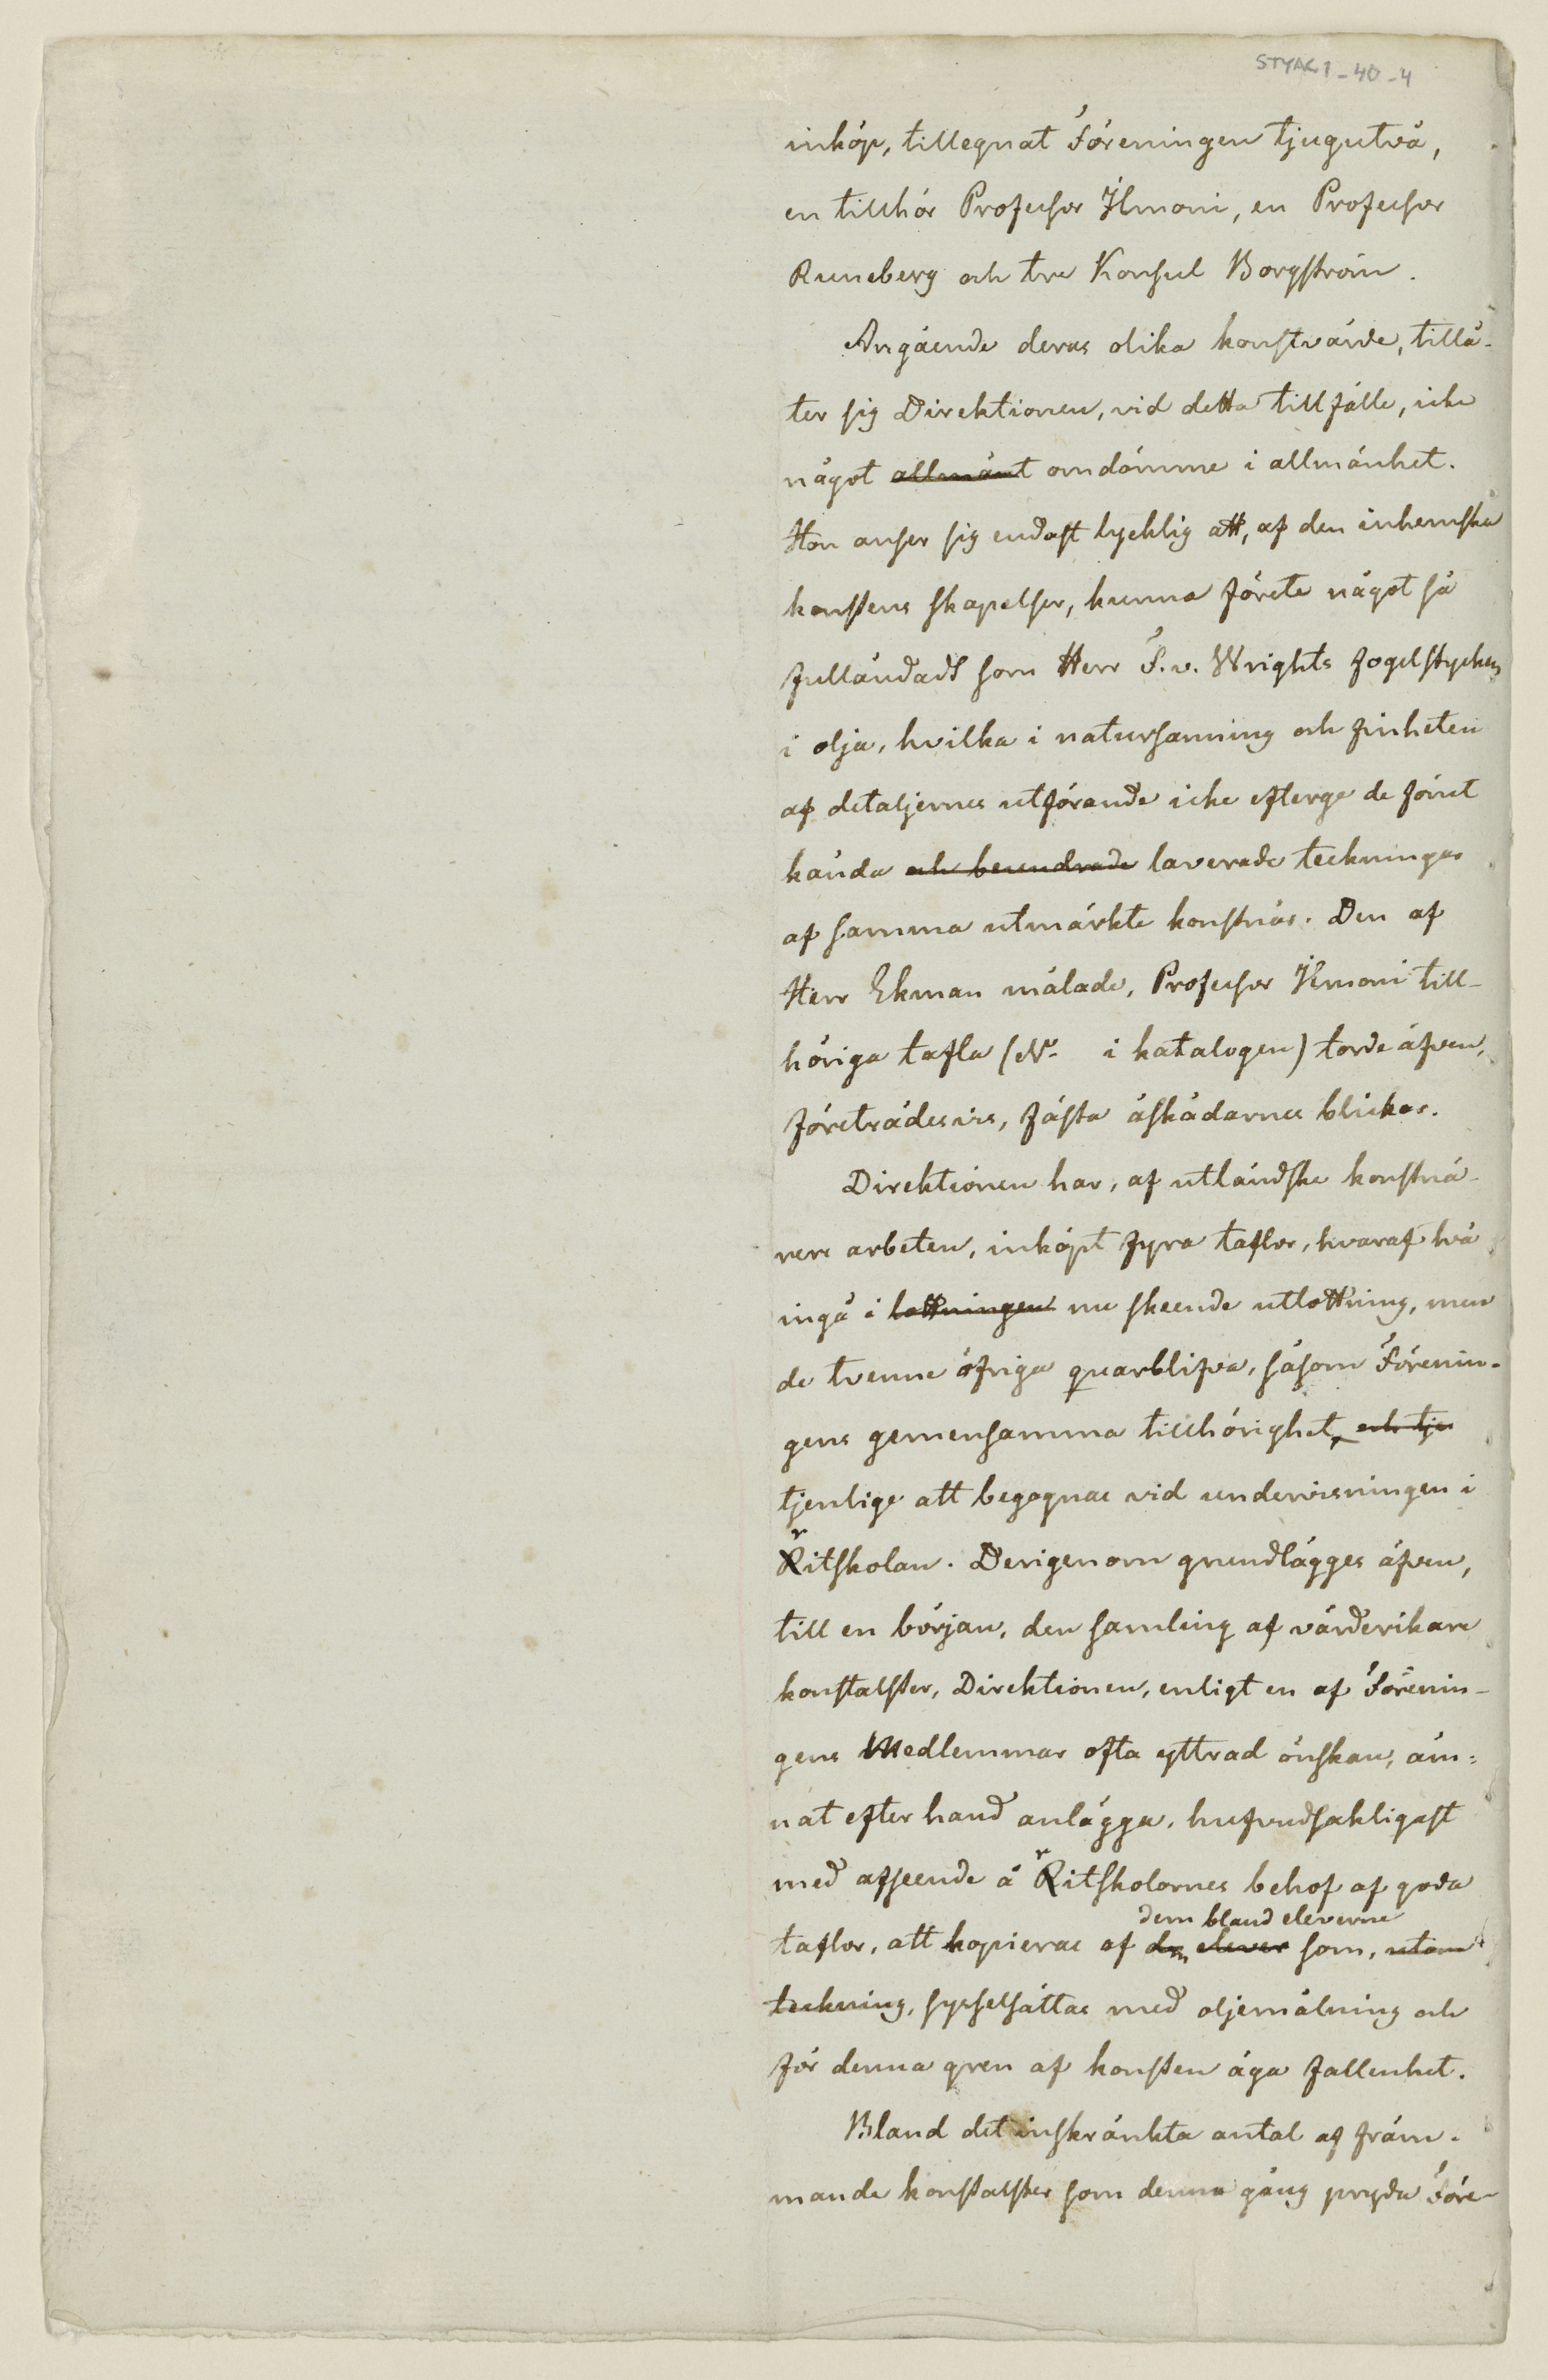 STYAG1-40-4
inköp, tillegnat Föreningen tjugutvå,
en tillhör Professor Ilmoni, en Professor
Runeberg och tre Konsul Borgström.
Angående deras olika konstvärde, tillå-
ter sig Direktionen, vid detta tillfälle, icke
något allmänt omdömme i allmänhet.
Hon anser sig endast lycklig att, af den inhemska
konstens skapelser, kunna förete något så
fulländadt som Herr F. v. Wrights fogelstycken
i olja, hvilka i natursanning och finheten
af detaljernes utförande icke efterge de förut
kända och beundrade laverade teckningar
af samma utmärkte konstnär. Den af
Herr Ekman målade, Professor Ilmoni till-
höriga tafla (No i katalogen) torde äfven,
företrädesvis, fästa åskådarnes blickar.
Direktionen har, af utländske konstnä-
rers arbeten, inköpt fyra taflor, hvaraf två
ingå i lottningen nu skeende utlottning, men
de tvenne öfriga quarblifva, såsom Förenin-
gens gemensamma tillhörighet, och tje
tjenlige att begagnas vid undervisningen i
Ritskolan. Derigenom grundlägges äfven,
till en början, den samling af värderikare
konstalster, Direktionen, enligt en af Förenin-
gens Medlemmar ofta yttrad önskan, äm-
nat efter hand anlägga, hufvudsakligast
med afseende å Ritskolornes behof af goda
dem bland eleverne
taflor, att kopieras af de elever som, utom
teckning, sysselsättas med oljemålning och
för denna gren af konsten äga fallenhet.
Bland det inskränkta antal af främ-
mande konstalster som denna gång pryda Före-